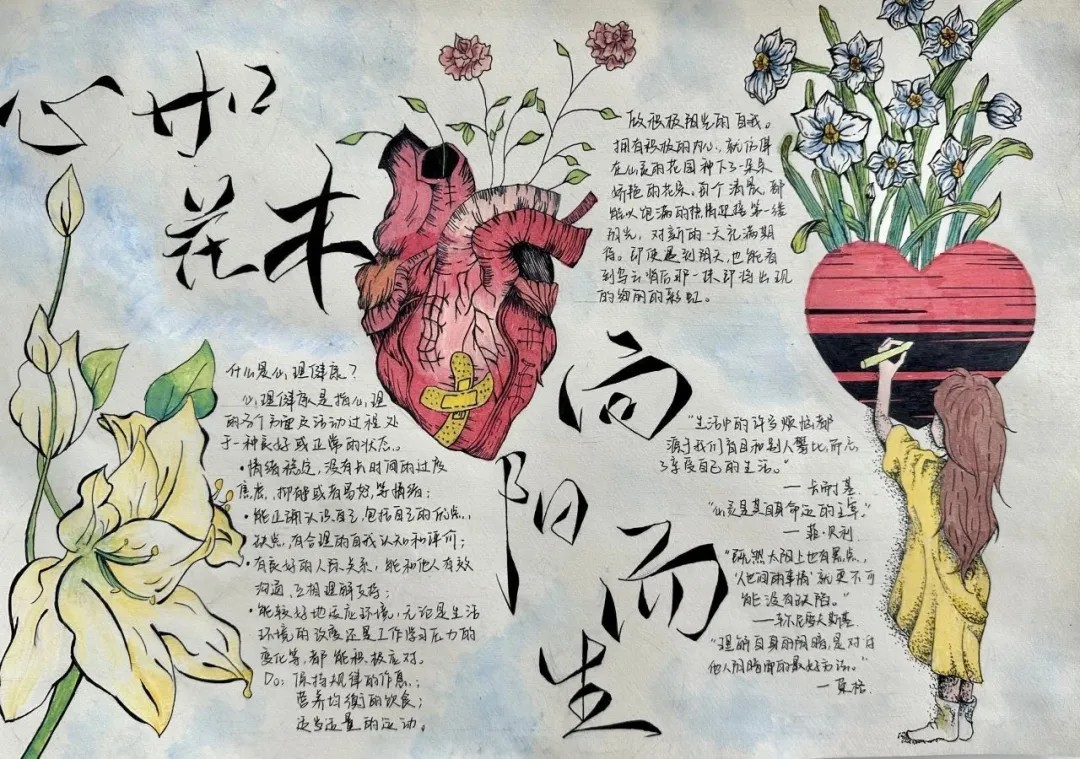 心如
花木
向
阳
而
生
什么是心理健康?
心理健康是指心理
的各个方面及活动过程处
于一种良好或正常的状态。
·情绪稳定,没有长时间的过度
焦虑、抑郁或者易怒等情绪;
·能正确认识自己,包括自己的优点、
缺点,有合理的自我认知和评价;
·有良好的人际关系,能和他人有效
沟通、互相理解支持;
·能较好地适应环境,无论是生活
环境的改变还是工作学习压力的
变化等,都能积极应对。
Do: 保持规律的作息;
营养均衡的饮食;
适当适量的运动。
做积极阳光的自我。
拥有积极的内心,就仿佛
在心灵的花园种下了一朵朵
娇艳的花朵。每个清晨,都
能以饱满的热情迎接第一缕
阳光,对新的一天充满期
待。即使遇到阴天,也能看
到乌云背后那一抹即将出现
的绚丽的彩虹。
"生活中的许多烦恼都
源于我们盲目和别人攀比,而忘
了享受自己的生活。"
—卡耐基
"心灵是其自身命运的主宰。"
—菲·贝利
"既然太阳上也有黑点,
'人世间的事情'就更不可
能没有缺陷。"
—车尔尼雪夫斯基
"理解自身的阴暗,是对付
他人阴暗面的最好方法。"
—荣格